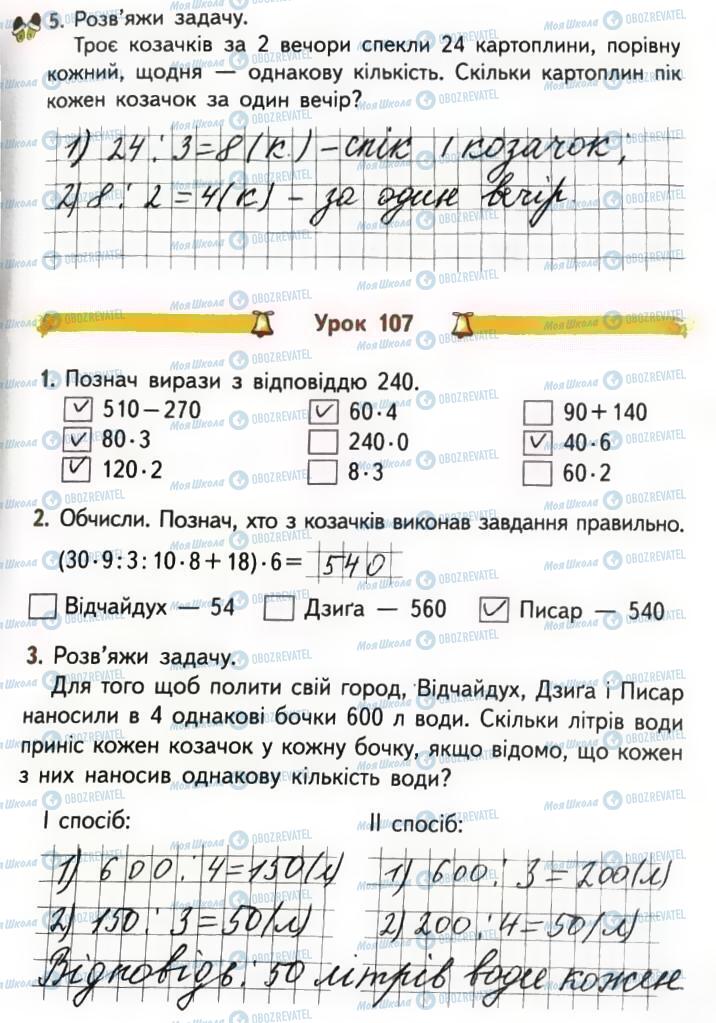 5. Розв'яжи задачу.
Троє козачків за 2 вечори спекли 24 картоплини, порівну
кожний, щодня — однакову кількість. Скільки картоплин пік
кожен козачок за один вечір?
1) 24 : 3 = 8 (к.) – спік 1 козачок;
2) 8 : 2 = 4 (к) – за один вечір.
Урок 107
1. Познач вирази з відповіддю 240.
510 – 270 60 · 4 90 + 140
80 · 3 240 · 0 40 · 6
120 · 2 8 · 3 60 · 2
2. Обчисли. Познач, хто з козачків виконав завдання правильно.
(30 · 9 : 3 : 10 · 8 + 18) · 6 = 540
Відчайдух — 54 Дзиґа — 560 Писар — 540
3. Розв'яжи задачу.
Для того щоб полити свій город, Відчайдух, Дзиґа і Писар
наносили в 4 однакові бочки 600 л води. Скільки літрів води
приніс кожен козачок у кожну бочку, якщо відомо, що кожен
з них наносив однакову кількість води?
І спосіб: ІІ спосіб:
1) 600 : 4 = 150 (л) 1) 600 : 3 = 200 (л)
2) 150 : 3 = 50 (л) 2) 200 : 4 = 50 (л)
Відповідь: 50 літрів води кожен